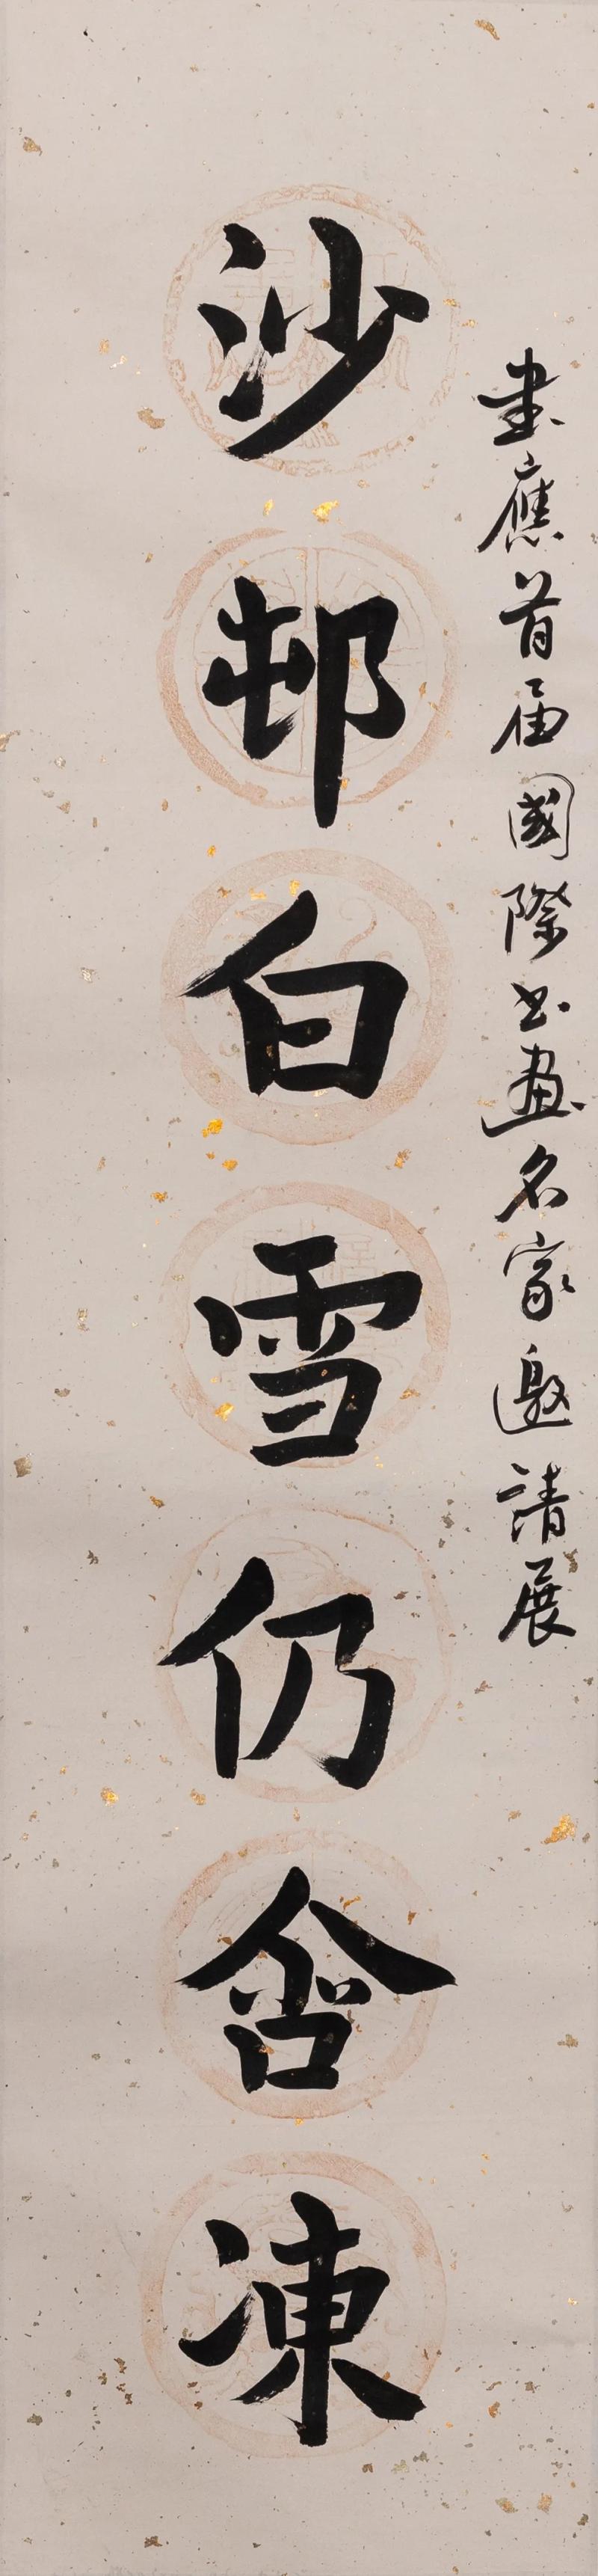 書應首届國際书畫名家邀請展
沙邨白雪仍含凍